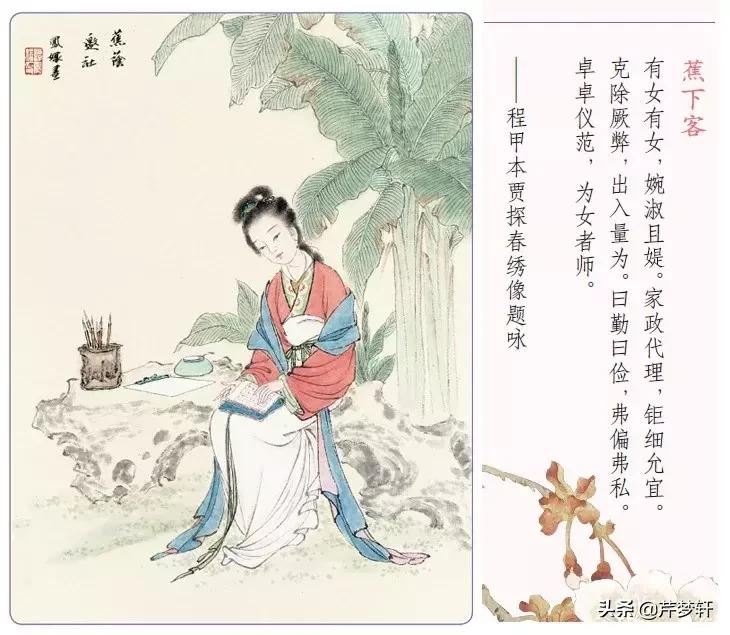 蕉荫
邀社
蕉下客
有女有女，婉淑且媞。家政代理，钜细允宜。
克除厥弊，出入量为。曰勤曰俭，弗偏弗私。
卓卓仪范，为女者师。
——程甲本贾探春绣像题咏
头条@芹梦轩